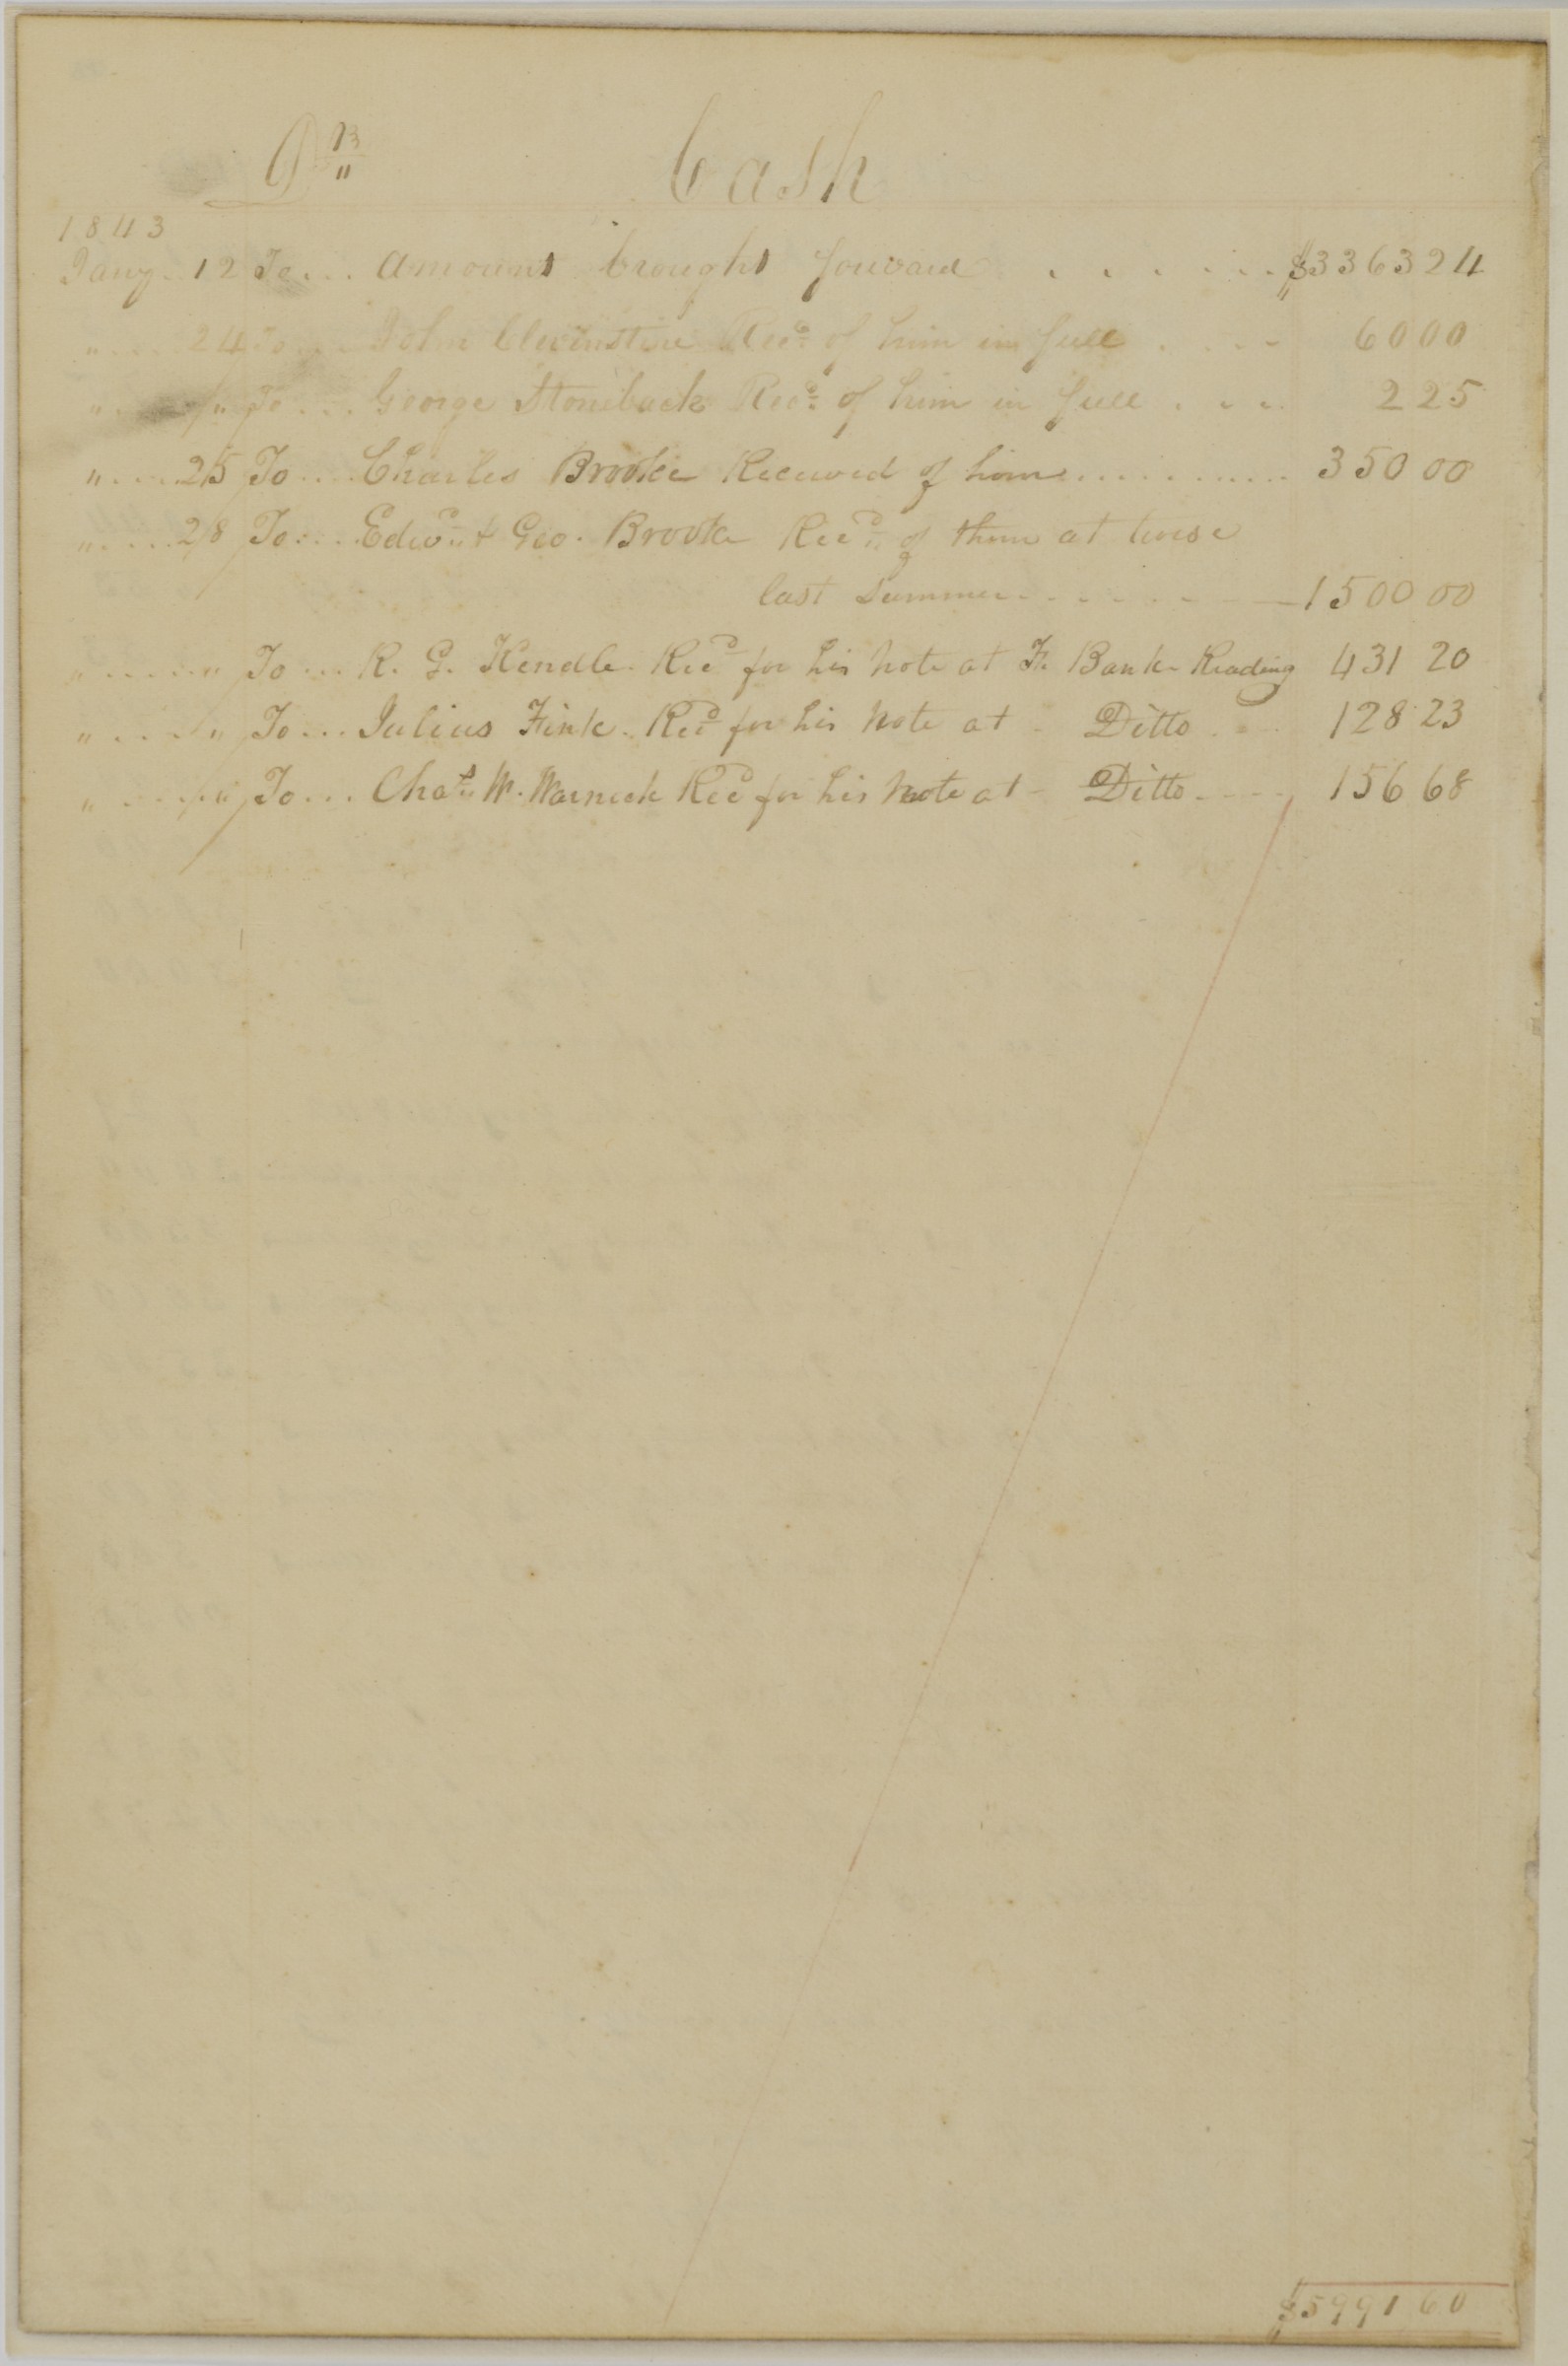 Dr Cash
1843
Jany 12 To... Amount brought forward . . . . . . $3363 24
" .... 24 To ... John Clevinstine Recd of him in full . . . . 60 00
" .... " To ... George Stoneback Recd of him in full . . . 2 25
" .... 25 To .... Charles Brooke Received of him ........... 350 00
" .... 28 To .... Edwd & Geo. Brooke Recd of them at
last summer . . . . . . . 1500 00
" ..... " To ... R. G. Kendle. Recd for his note at F. Bank - Reading 431 20
" .... " To ... Julius Fink. Recd for his Note at - Ditto .... 128 23
" .... " To ... Chas W. Warnick Recd for his Note at - Ditto .... 156 68
$5991 60